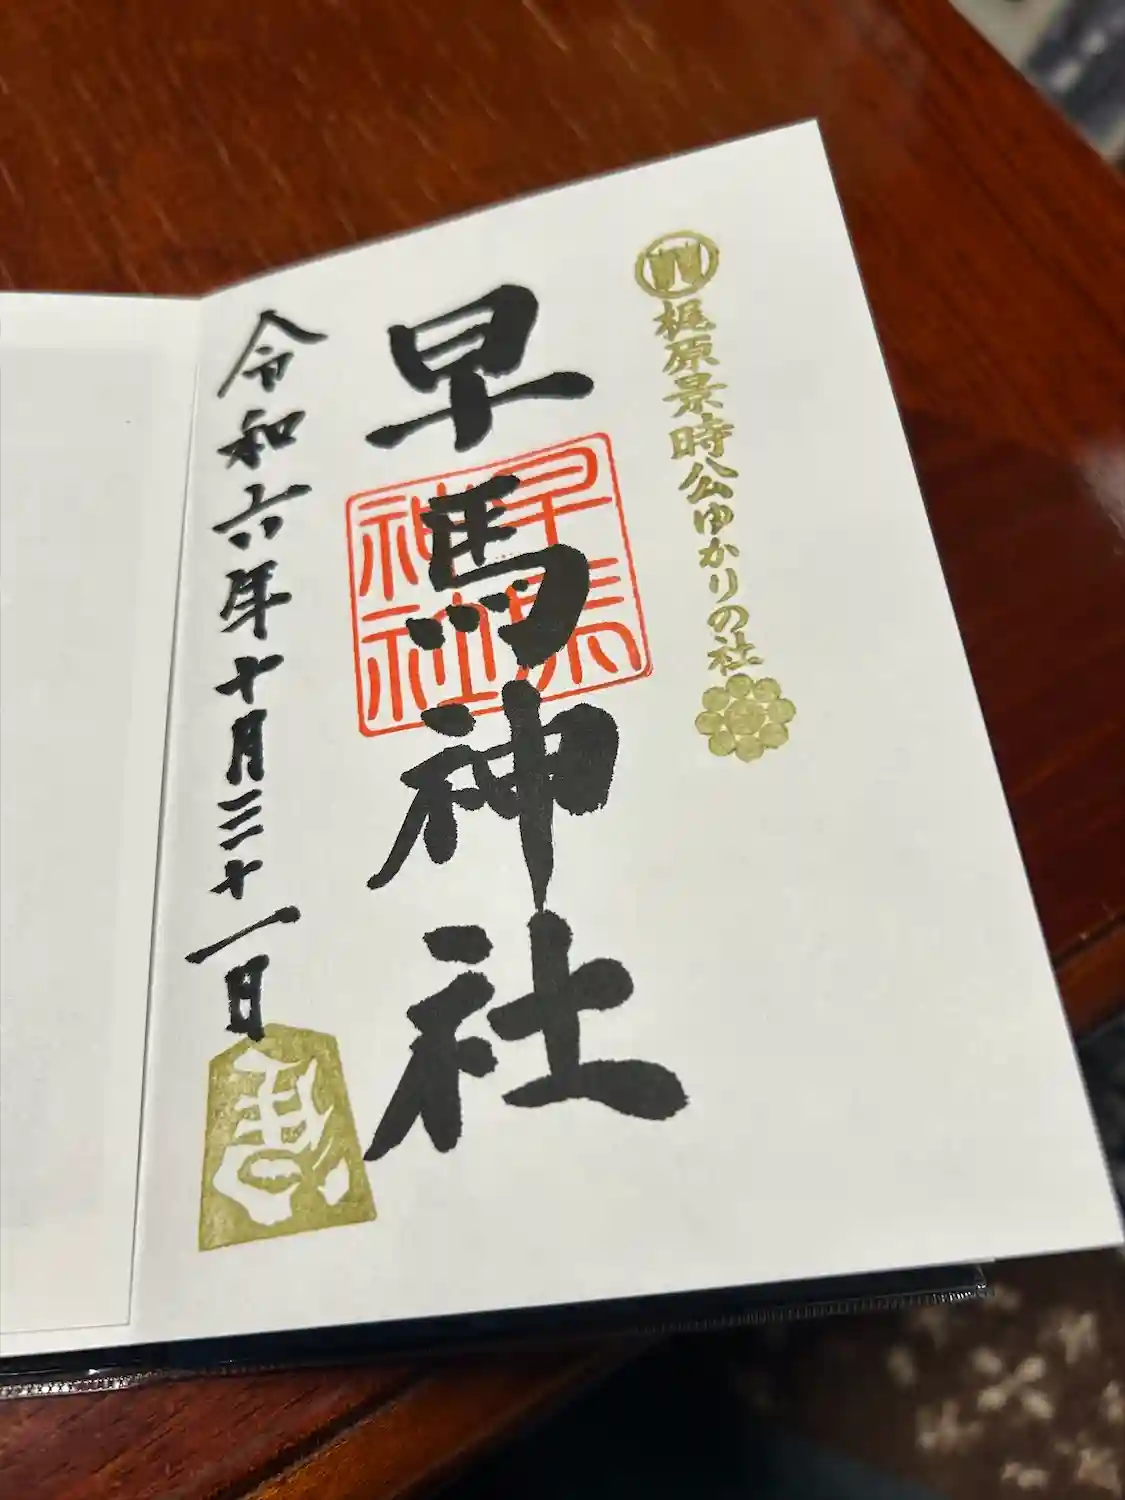 梶原景時公ゆかりの社
早馬神社
早馬
神社
令和六年十月三十一日